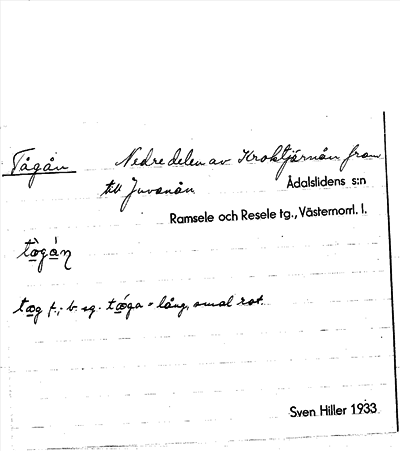 Tågån Nedre delen av Kroktjärnån fram
till Juvanån
Ådalslidens s:n
Ramsele och Resele tg., Västernorrl. l.
tò̱gáṇ
tæg f.; b. sg. tǽga = lång, smal rot.
Sven Hiller 1933